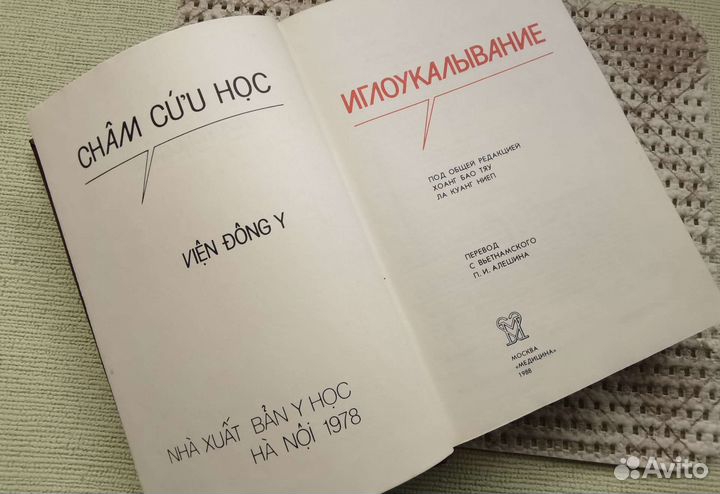 CHÂM CỨU HỌC
VIỆN ĐÔNG Y
NHÀ XUẤT BẢN Y HỌC
HÀ NỘI 1978
ИГЛОУКАЛЫВАНИЕ
ПОД ОБЩЕЙ РЕДАКЦИЕЙ
ХОАНГ БАО ТЯУ
ЛА КУАНГ НИЕП
ПЕРЕВОД
С ВЬЕТНАМСКОГО
П. И. АЛЕШИНА
МОСКВА
«МЕДИЦИНА»
1988
Avito